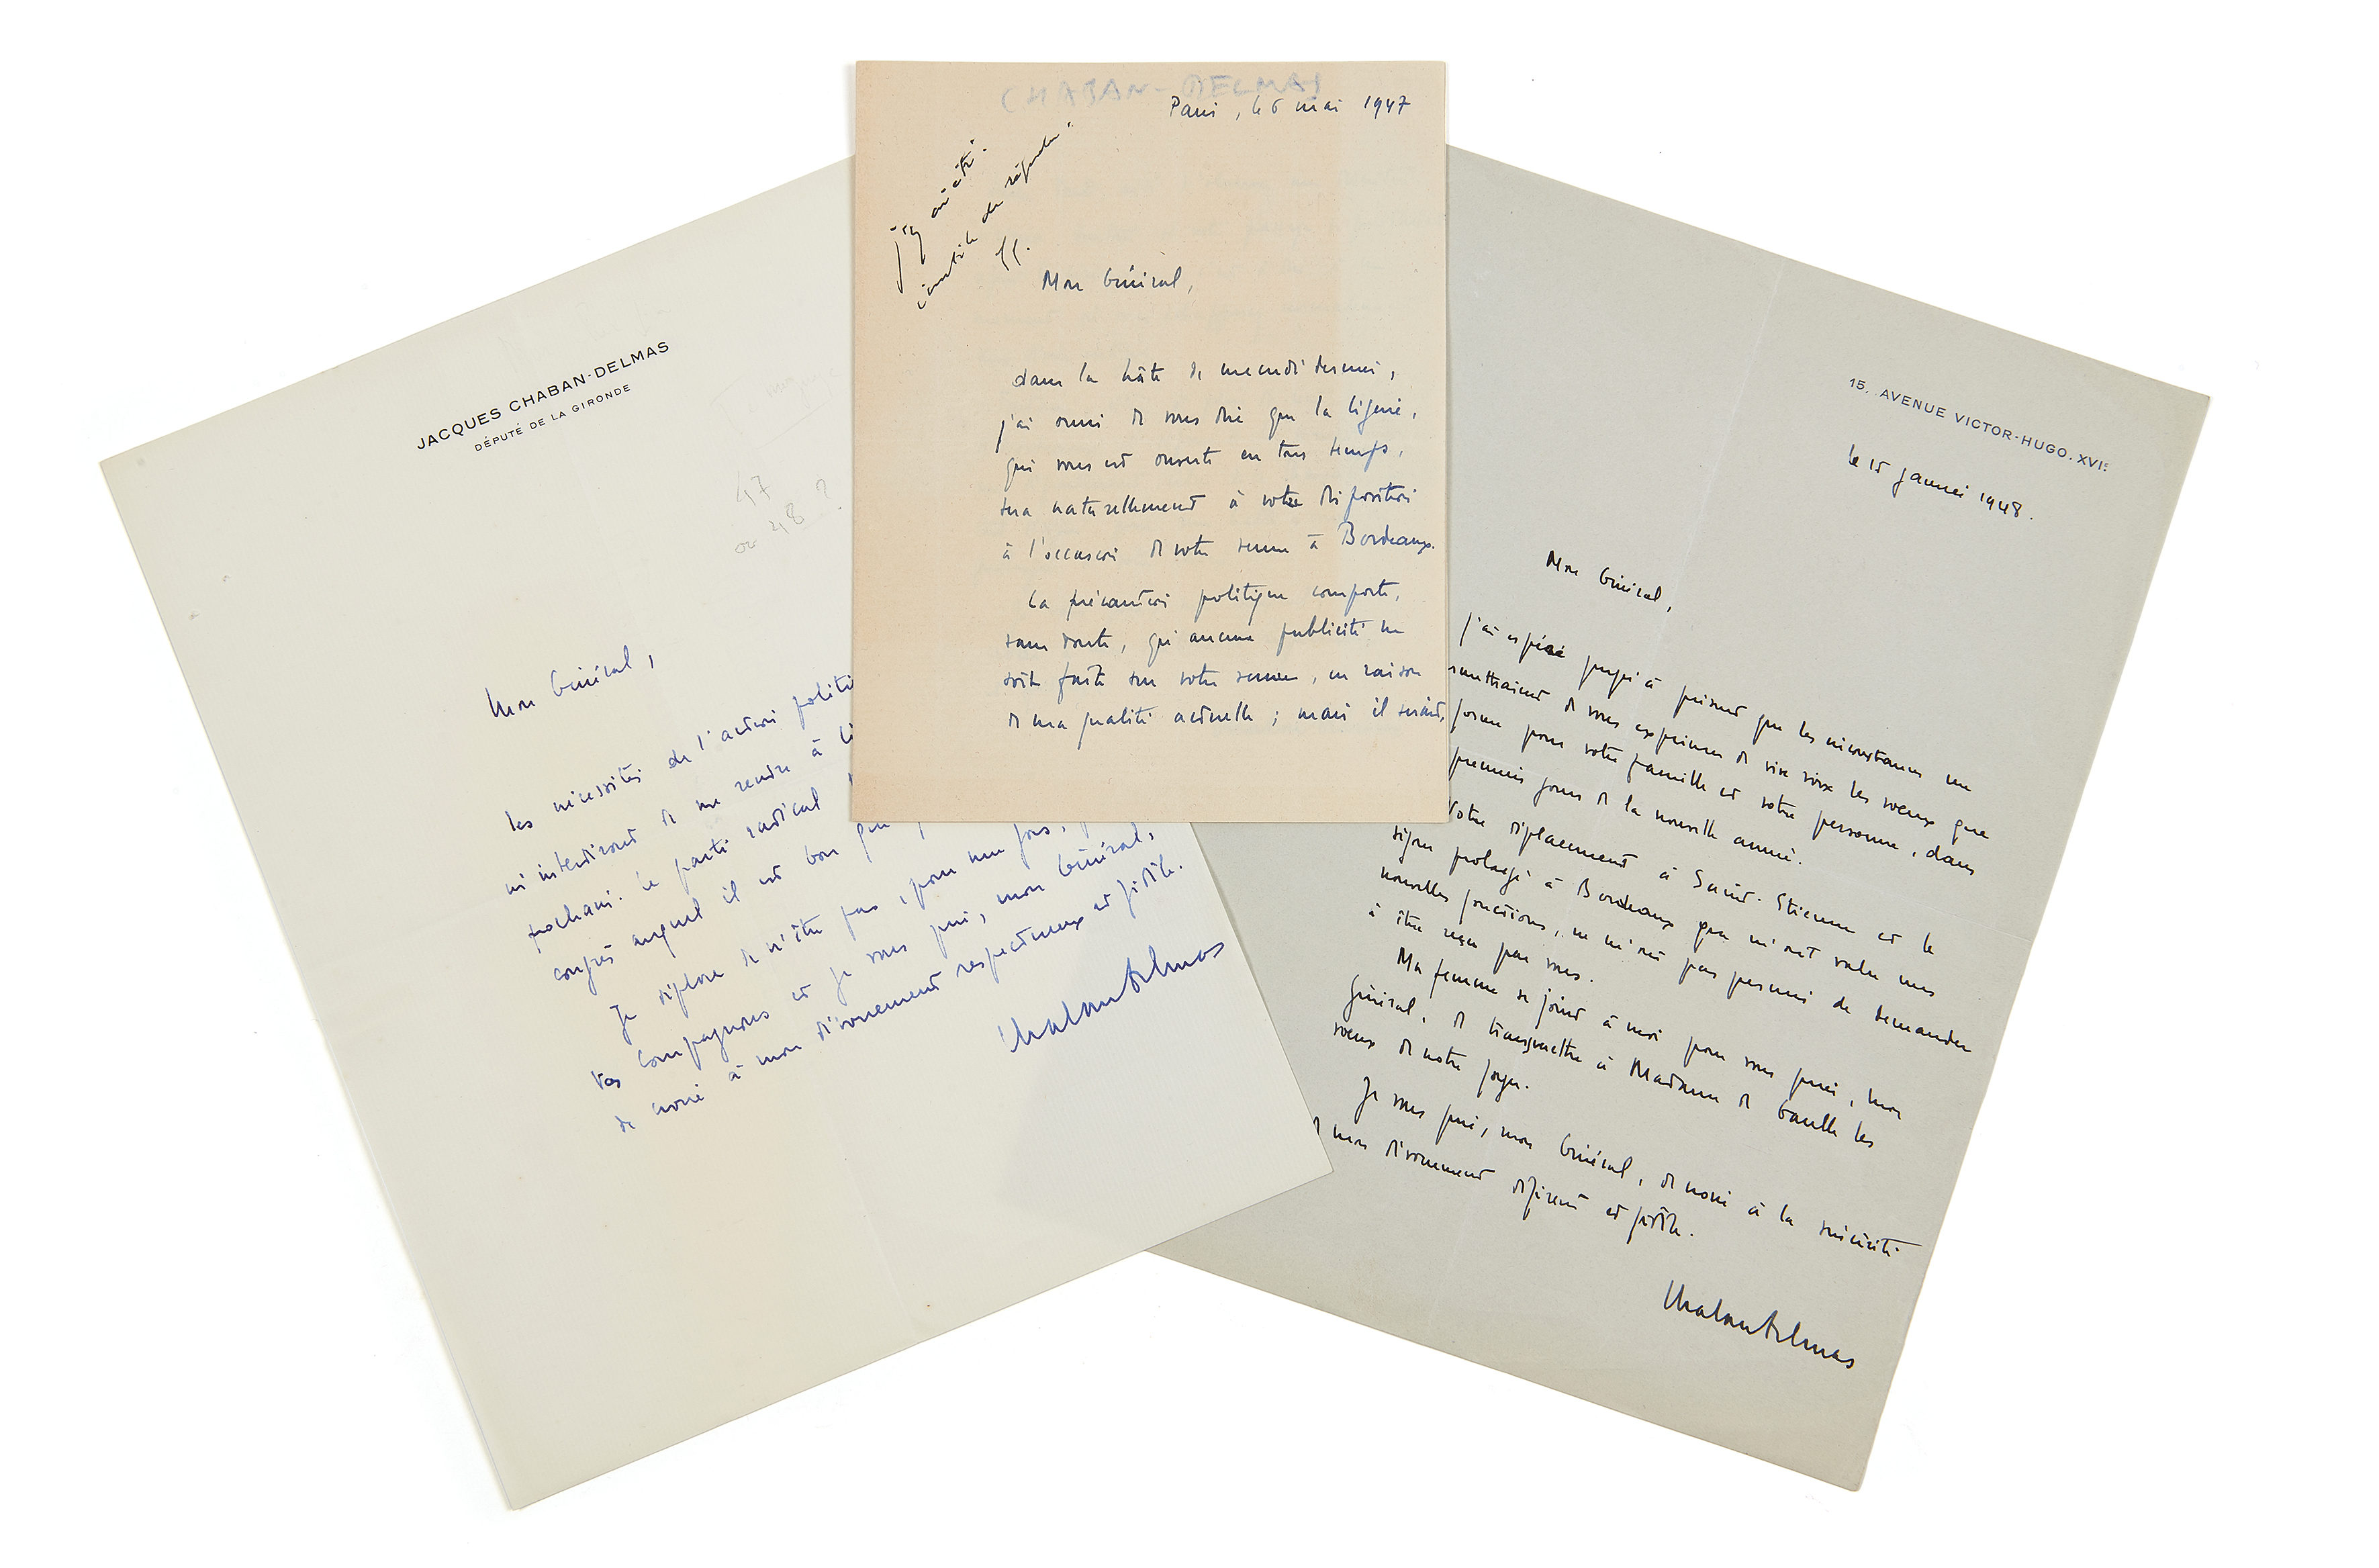 JACQUES CHABAN-DELMAS
DÉPUTÉ DE LA GIRONDE
47
ou 48 ?
Mon Général,
les nécessités de l'action politi
m'interdisent de me rendre à
prochain. Le parti radical
congrès auquel il est bon que
Je déplore de n'être pas, pour une fois,
vos compagnons et je vous prie, mon Général,
de croire à mon dévouement respectueux et fidèle.
Chaban Delmas
CHABAN-DELMAS
Paris, le 6 mai 1947
"j'y ai été.
inutile de répondre"
Mon Général,
dans la hâte de mercredi dernier,
j'ai omis de vous dire que la
qui vous est ouverte en tous temps,
sera naturellement à votre disposition
à l'occasion de votre venue à Bordeaux.
La précaution politique comporte,
sans doute, qu'aucune publicité ne
soit faite sur votre venue, en raison
de ma qualité actuelle ; mais il serait,
15, AVENUE VICTOR-HUGO. XVIE
le 15 janvier 1948.
Mon Général,
j'ai espéré jusqu'à présent que les circonstances me
permettraient de vous exprimer de vive voix les voeux que
forme pour votre famille et votre personne, dans
premiers jours de la nouvelle année.
Votre déplacement à Saint-Etienne et le
séjour prolongé à Bordeaux que m'ont valu mes
nouvelles fonctions, ne m'ont pas permis de demander
à être reçu par vous.
Ma femme se joint à moi pour vous prier, mon
Général, de transmettre à Madame de Gaulle les
voeux de notre foyer.
Je vous prie, mon Général, de croire à la sincérité
de mon dévouement déférent et fidèle.
Chaban Delmas